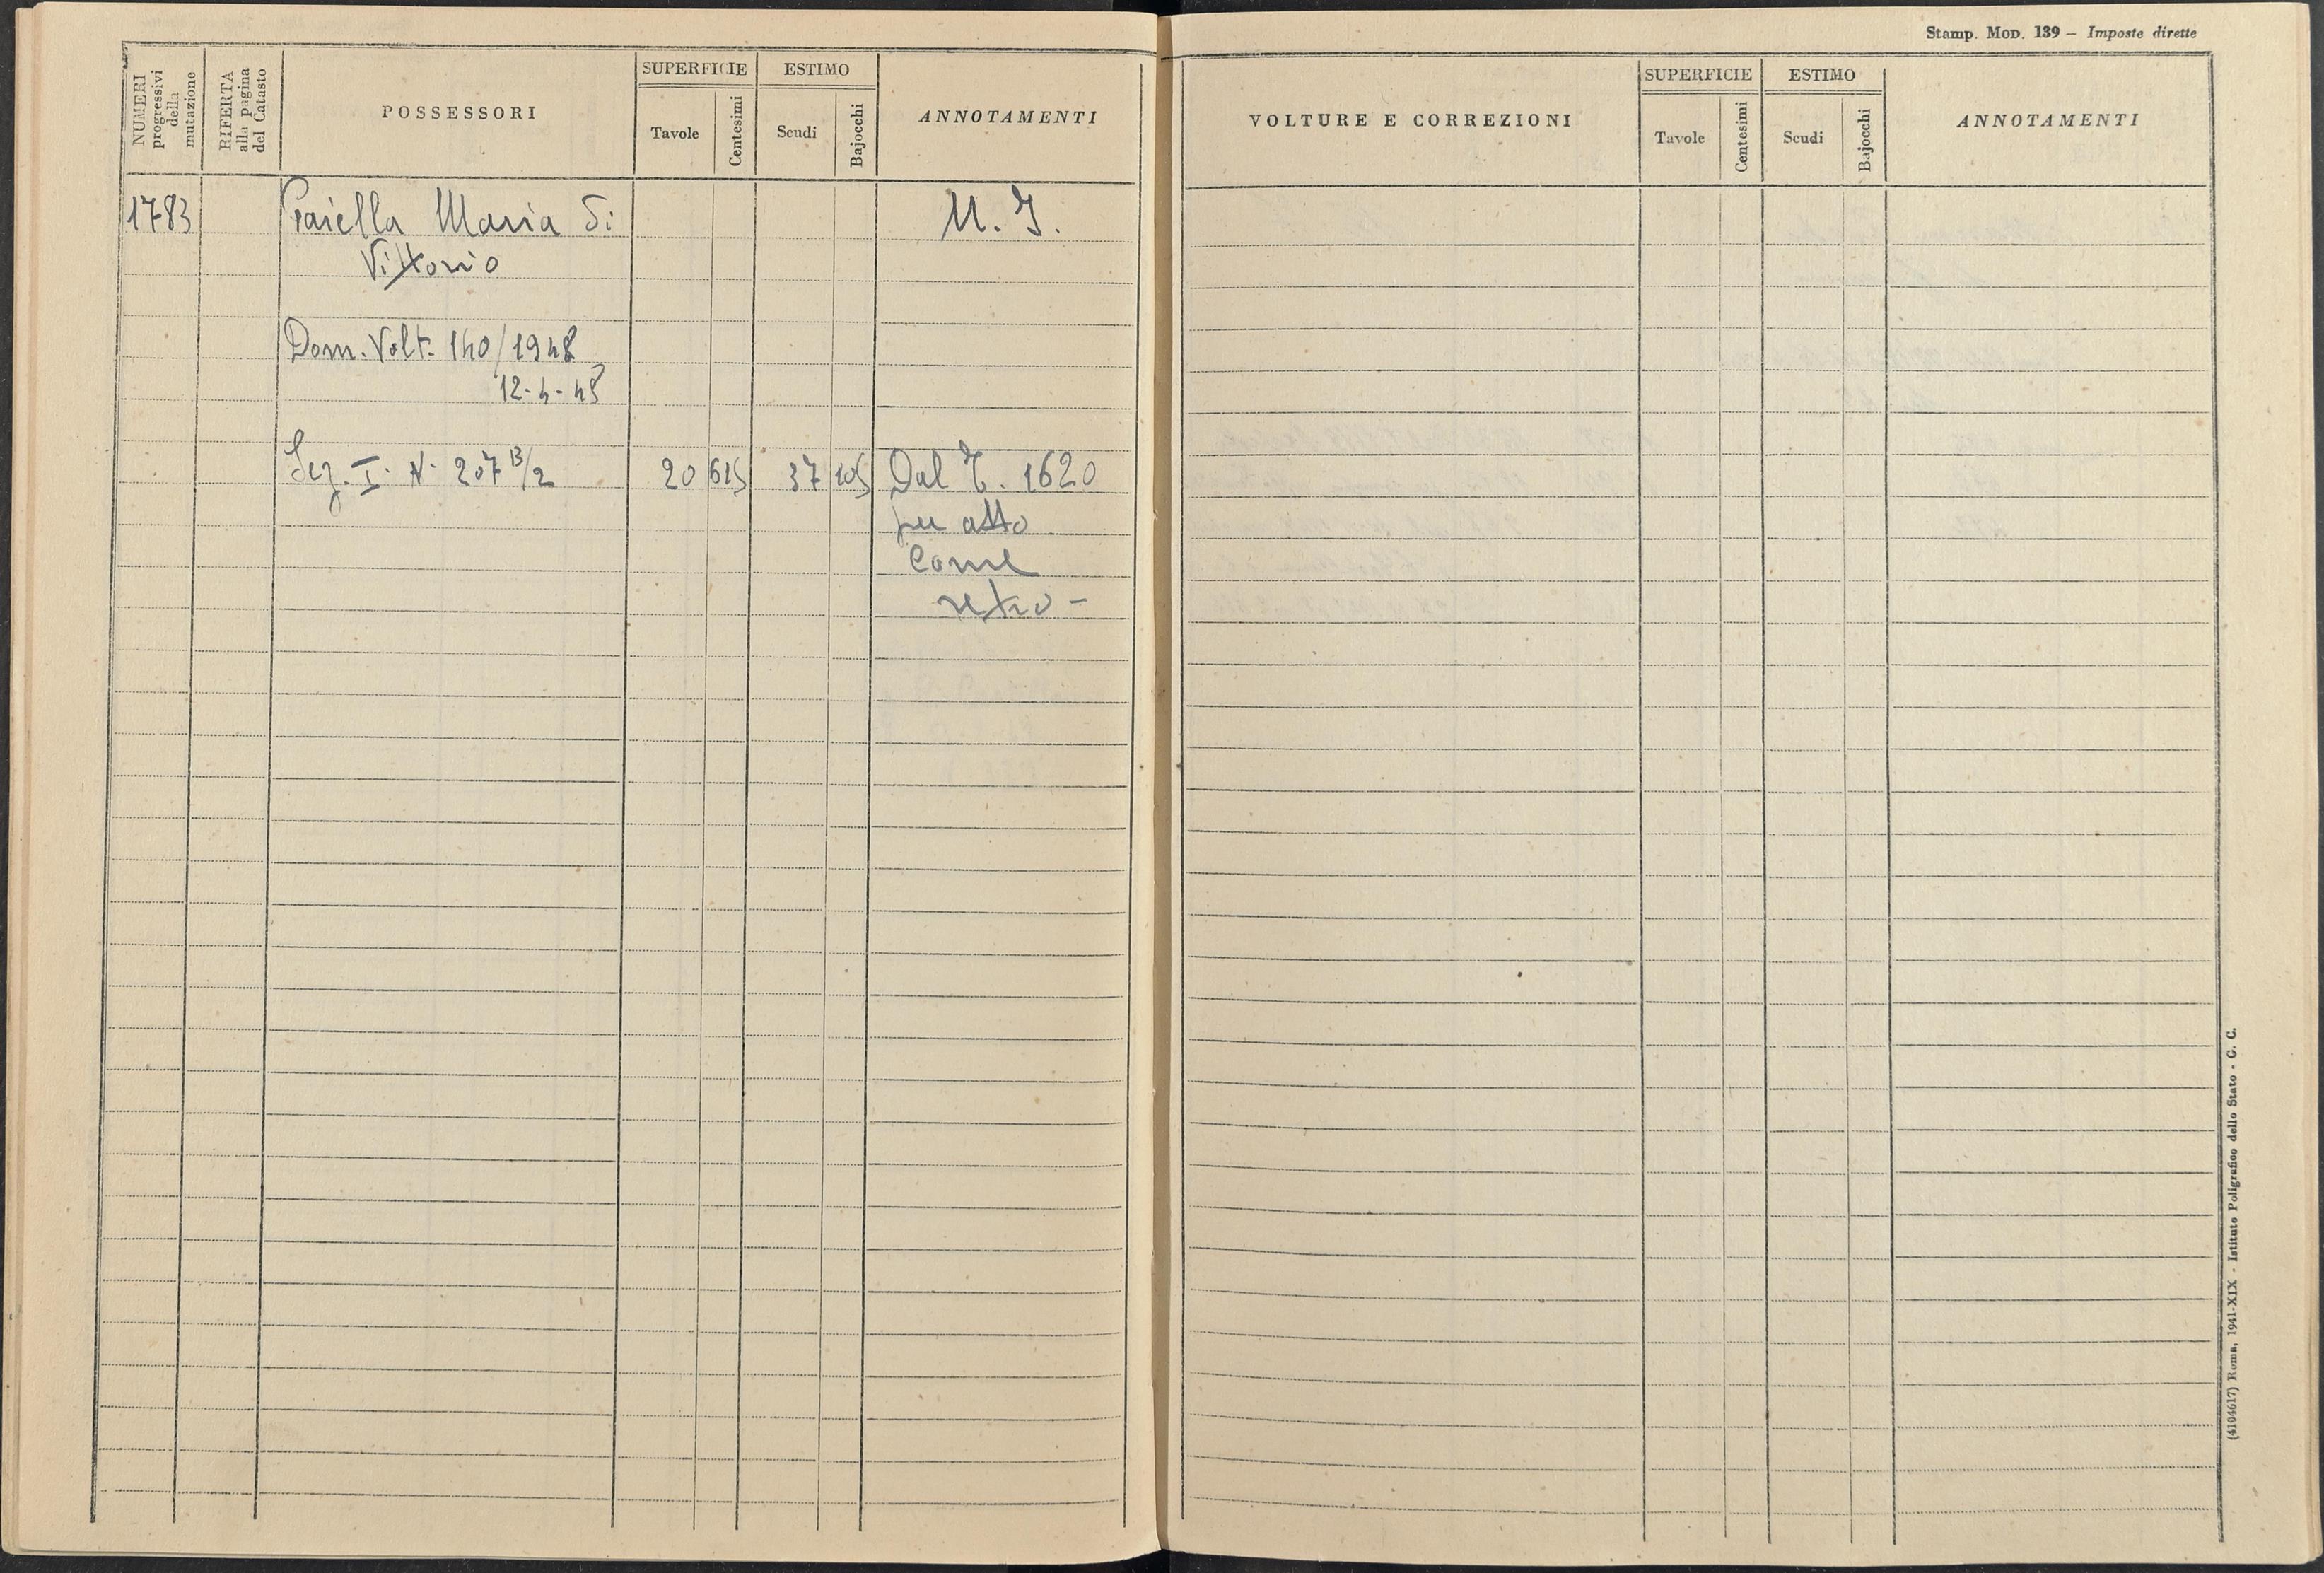 Stamp. Mod. 139 – Imposte dirette
NUMERI
progressivi
della
mutazione
RIFERTA
alla pagina
del Catasto
POSSESSORI
SUPERFICIE
Tavole
Centesimi
ESTIMO
Scudi
Bajocchi
ANNOTAMENTI
VOLTURE E CORREZIONI
SUPERFICIE
Tavole
Centesimi
ESTIMO
Scudi
Bajocchi
ANNOTAMENTI
1783 Maria di U. I.
Vittorio
Dom. Volt. 140/1948
12-4-48
Sez. I. N. 207 13/2 20 615 37 105 Dal T. 1620
per atto
come
retro –
(4104617) Roma, 1941-XIX - Istituto Poligrafico dello Stato - G. C.